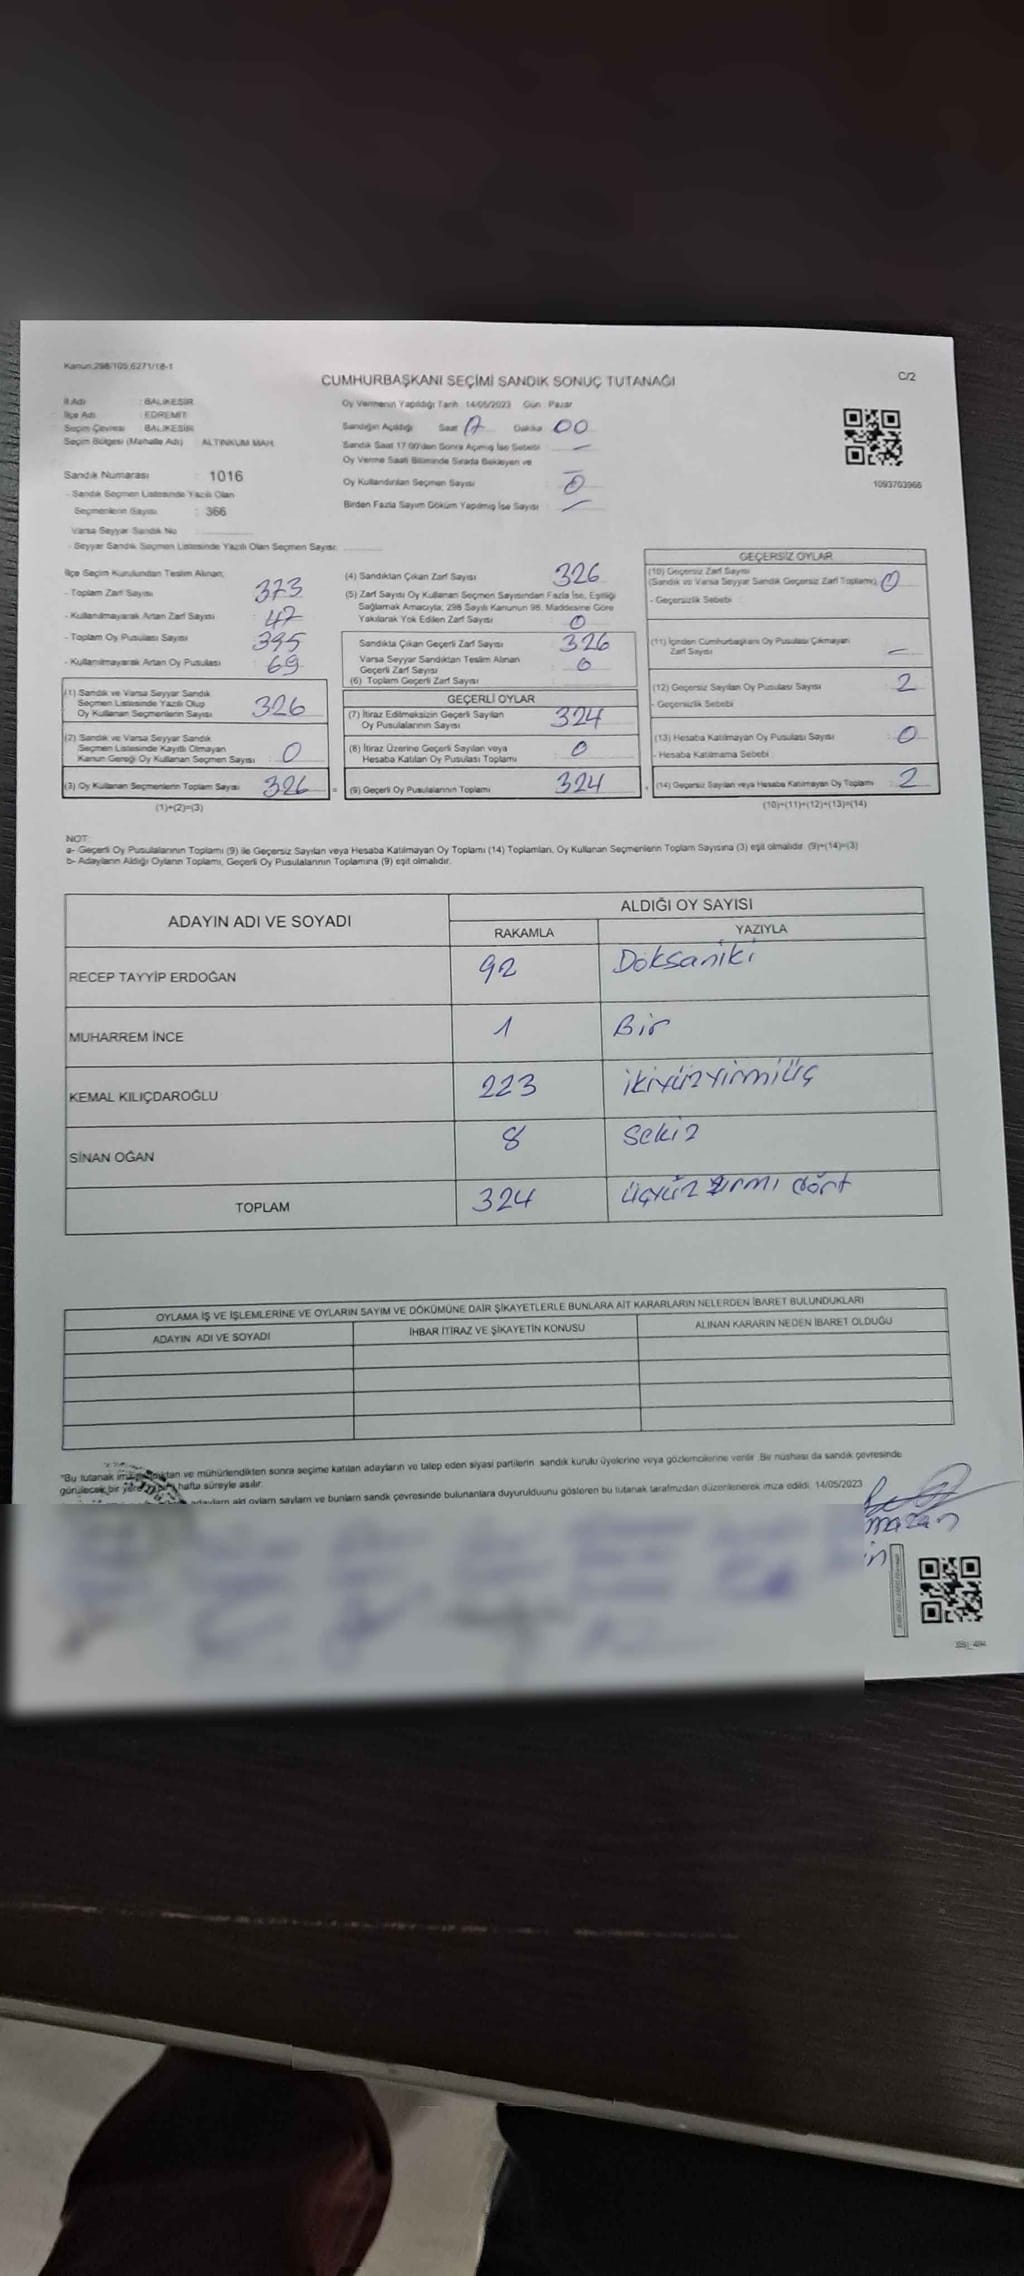 Kanun:298/105;6271/18-1
CUMHURBAŞKANI SEÇİMİ SANDIK SONUÇ TUTANAĞI
C/2
İl Adı : BALIKESİR
İlçe Adı : EDREMİT
Seçim Çevresi : BALIKESİR
Seçim Bölgesi (Mahalle Adı) ALTINKUM MAH.
Sandık Numarası : 1016
- Sandık Seçmen Listesinde Yazılı Olan
Seçmenlerin Sayısı : 366
Varsa Seyyar Sandık No
- Seyyar Sandık Seçmen Listesinde Yazılı Olan Seçmen Sayısı:
Oy Vermenin Yapıldığı Tarih : 14/05/2023 Gün : Pazar
Sandığın Açıldığı Saat 17 Dakika 00
Sandık Saat 17:00'den Sonra Açılmış İse Sebebi : -
Oy Verme Saati Bitiminde Sırada Bekleyen ve
Oy Kullandırılan Seçmen Sayısı : 0
Birden Fazla Sayım Döküm Yapılmış İse Sayısı : -
1093703966
İlçe Seçim Kurulundan Teslim Alınan;
- Toplam Zarf Sayısı : 373
- Kullanılmayarak Artan Zarf Sayısı : 47
- Toplam Oy Pusulası Sayısı : 395
- Kullanılmayarak Artan Oy Pusulası : 69
(1) Sandık ve Varsa Seyyar Sandık
Seçmen Listesinde Yazılı Olup
Oy Kullanan Seçmenlerin Sayısı : 326
(2) Sandık ve Varsa Seyyar Sandık
Seçmen Listesinde Kayıtlı Olmayan
Kanun Gereği Oy Kullanan Seçmen Sayısı : 0
(3) Oy Kullanan Seçmenlerin Toplam Sayısı : 326
(1)+(2)=(3)
(4) Sandıktan Çıkan Zarf Sayısı : 326
(5) Zarf Sayısı Oy Kullanan Seçmen Sayısından Fazla İse, Eşitliği
Sağlamak Amacıyla; 298 Sayılı Kanunun 98. Maddesine Göre
Yakılarak Yok Edilen Zarf Sayısı : 0
Sandıkta Çıkan Geçerli Zarf Sayısı : 326
Varsa Seyyar Sandıktan Teslim Alınan
Geçerli Zarf Sayısı : 0
(6) Toplam Geçerli Zarf Sayısı :
GEÇERLİ OYLAR
(7) İtiraz Edilmeksizin Geçerli Sayılan
Oy Pusulalarının Sayısı : 324
(8) İtiraz Üzerine Geçerli Sayılan veya
Hesaba Katılan Oy Pusulası Toplamı : 0
(9) Geçerli Oy Pusulalarının Toplamı : 324
GEÇERSİZ OYLAR
(10) Geçersiz Zarf Sayısı
(Sandık ve Varsa Seyyar Sandık Geçersiz Zarf Toplamı) : 0
- Geçersizlik Sebebi :
(11) İçinden Cumhurbaşkanı Oy Pusulası Çıkmayan
Zarf Sayısı : -
(12) Geçersiz Sayılan Oy Pusulası Sayısı : 2
- Geçersizlik Sebebi :
(13) Hesaba Katılmayan Oy Pusulası Sayısı : 0
- Hesaba Katılmama Sebebi :
(14) Geçersiz Sayılan veya Hesaba Katılmayan Oy Toplamı : 2
(10)+(11)+(12)+(13)=(14)
NOT:
a- Geçerli Oy Pusulalarının Toplamı (9) ile Geçersiz Sayılan veya Hesaba Katılmayan Oy Toplamı (14) Toplamları, Oy Kullanan Seçmenlerin Toplam Sayısına (3) eşit olmalıdır. (9)+(14)=(3)
b- Adayların Aldığı Oyların Toplamı, Geçerli Oy Pusulalarının Toplamına (9) eşit olmalıdır.
ADAYIN ADI VE SOYADI ALDIĞI OY SAYISI
RAKAMLA YAZIYLA
RECEP TAYYİP ERDOĞAN 92 Doksaniki
MUHARREM İNCE 1 Bir
KEMAL KILIÇDAROĞLU 223 ikiyüzyirmiüç
SİNAN OĞAN 8 Sekiz
TOPLAM 324 üçyüz yirmi dört
OYLAMA İŞ VE İŞLEMLERİNE VE OYLARIN SAYIM VE DÖKÜMÜNE DAİR ŞİKAYETLERLE BUNLARA AİT KARARLARIN NELERDEN İBARET BULUNDUKLARI
ADAYIN ADI VE SOYADI İHBAR İTİRAZ VE ŞİKAYETİN KONUSU ALINAN KARARIN NEDEN İBARET OLDUĞU
"Bu tutanak ve mühürlendikten sonra seçime katılan adayların ve talep eden siyasi partilerin sandık kurulu üyelerine veya gözlemcilerine verilir. Bir nüshası da sandık çevresinde
görülecek bir hafta süreyle asılır.
ve bunların sandık çevresinde bulunanlara duyurulduunu gösteren bu tutanak tarafımzdan düzenlenerek imza edildi. 14/05/2023